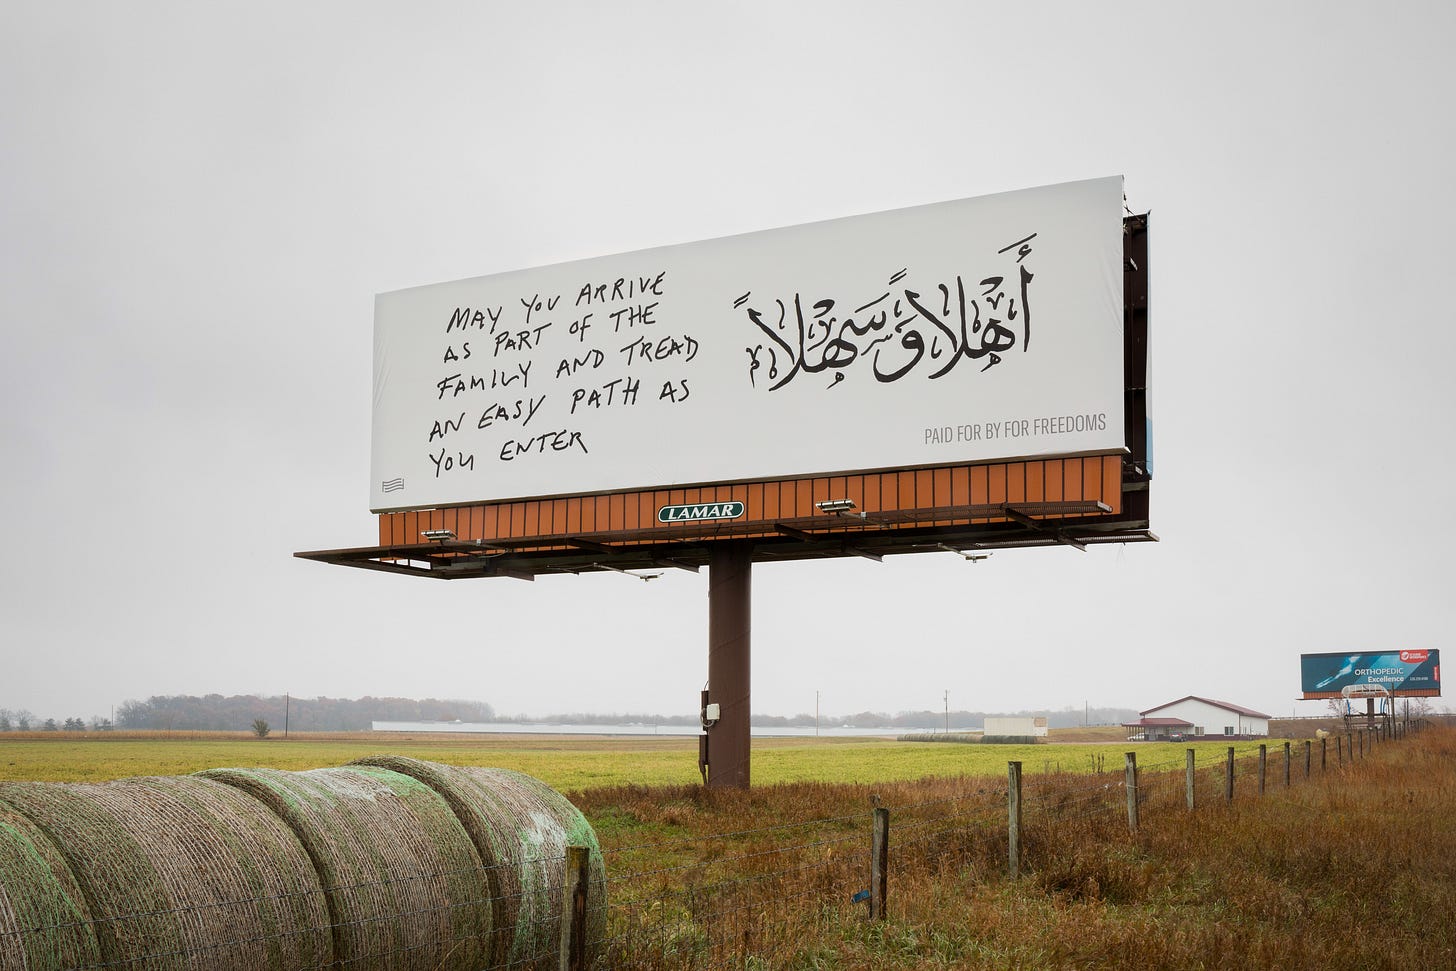 MAY YOU ARRIVE
AS PART OF THE
FAMILY AND TREAD
AN EASY PATH AS
YOU ENTER
أَهْلاً وَسَهْلاً
PAID FOR BY FOR FREEDOMS
LAMAR
ORTHOPEDIC
Excellence